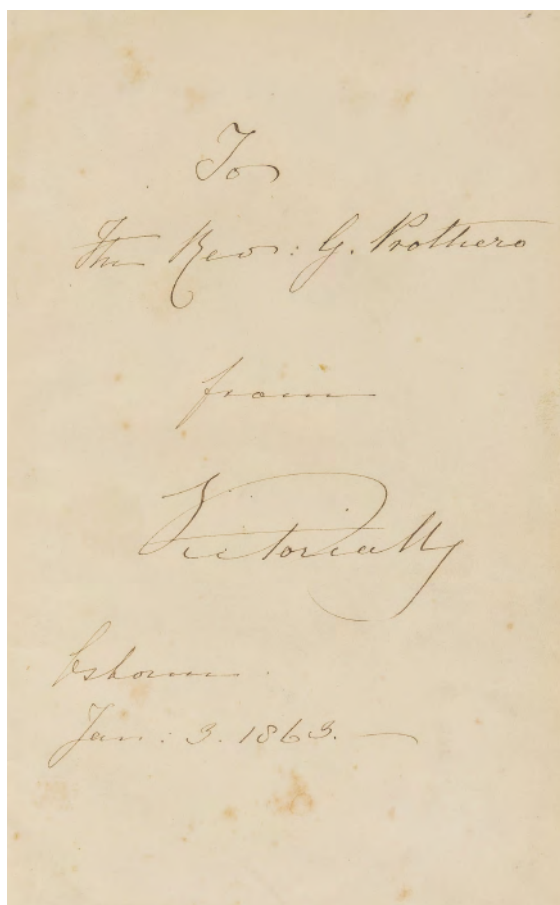 To
The Rev: G. Prothero
from
Victoria R
Osborne
Jan: 3. 1863.